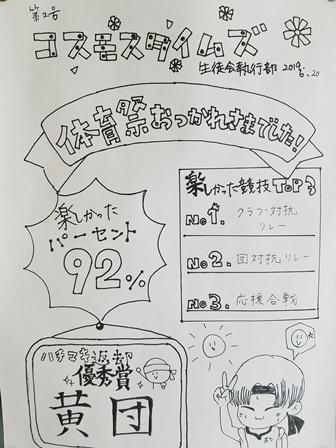 第2号
コスモスタイムズ
生徒会執行部 2019.6.20
体育祭おつかれさまでした!
楽しかった
パーセント
92%
楽しかった競技TOP3
No1. クラブ対抗
リレー
No2. 団対抗リレー
No3. 応援合戦
ハチマキ返却
優秀賞
黄団